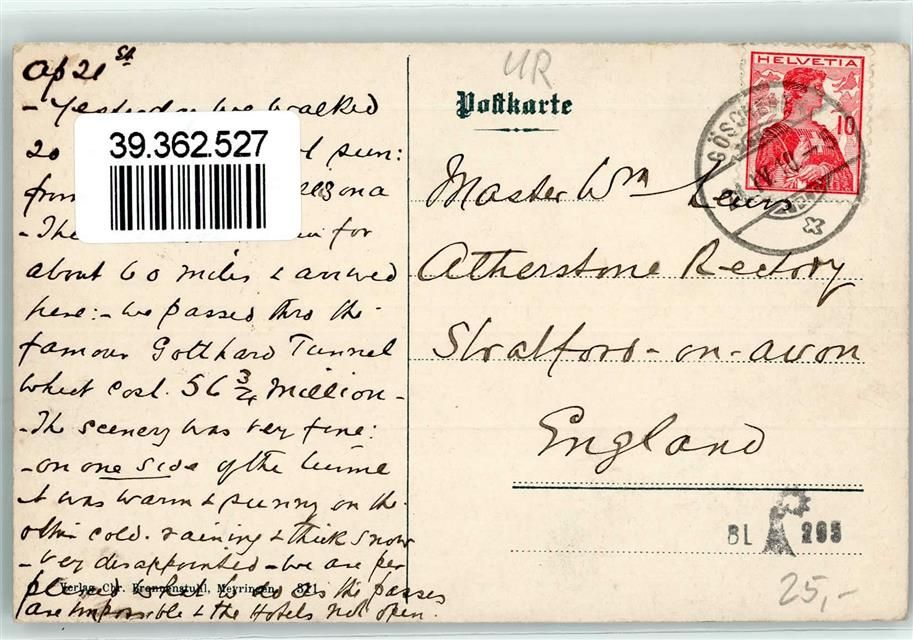 Ap 21st
- Yesterday we walked
39.362.527
20 sun:
from
- The for
about 60 miles & arrived
here: - we passed thro the
famous Gotthard Tunnel
which cost 56 3/4 Million -
- The scenery was very fine:
- on one side of the tunnel
it was warm & sunny on the
other cold. raining & thick snow
- very disappointed - we are per
plexed what to do as the passes
are impossible & the Hotels not open.
Verlag Chr. Brennenstuhl, Meyringen. 321
UR
Postkarte
HELVETIA
10
GÖSCHENEN
Master Wm Lewis
Atherstone Rectory
Stratford - on - avon
England
BL 295
25,-